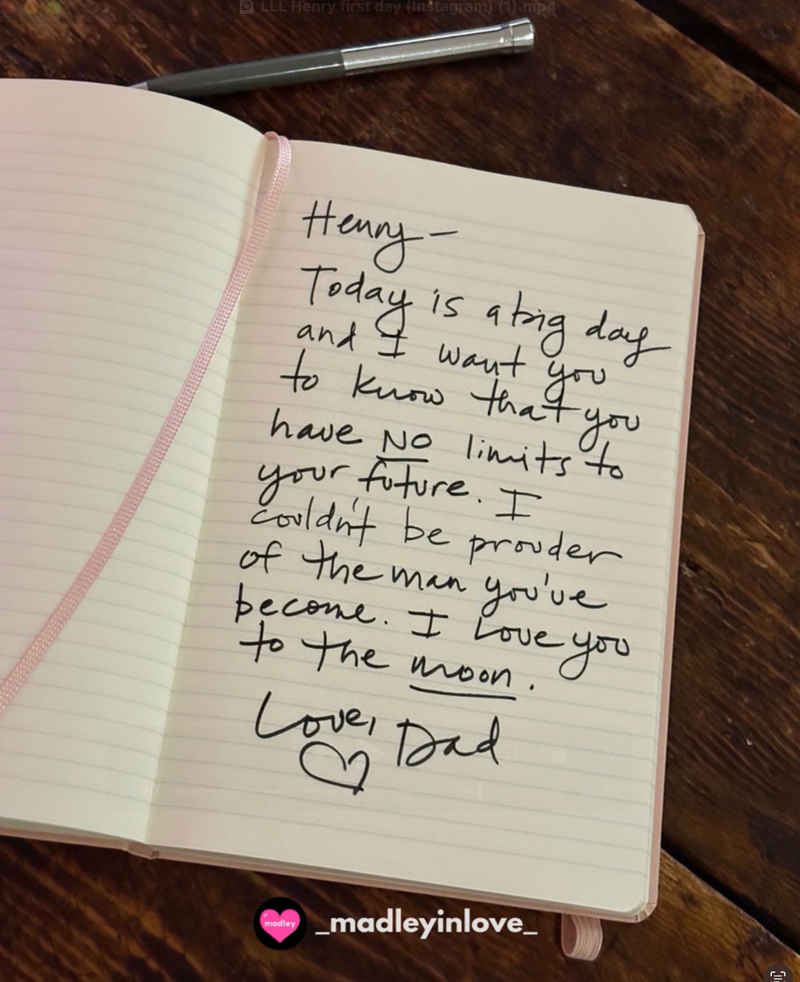 LLL Henry first day (Instagram) (1).mp4
Henry –
Today is a big day
and I want you
to know that you
have NO limits to
your future. I
couldn't be prouder
of the man you've
become. I love you
to the moon.
Love, Dad
madley
_madleyinlove_